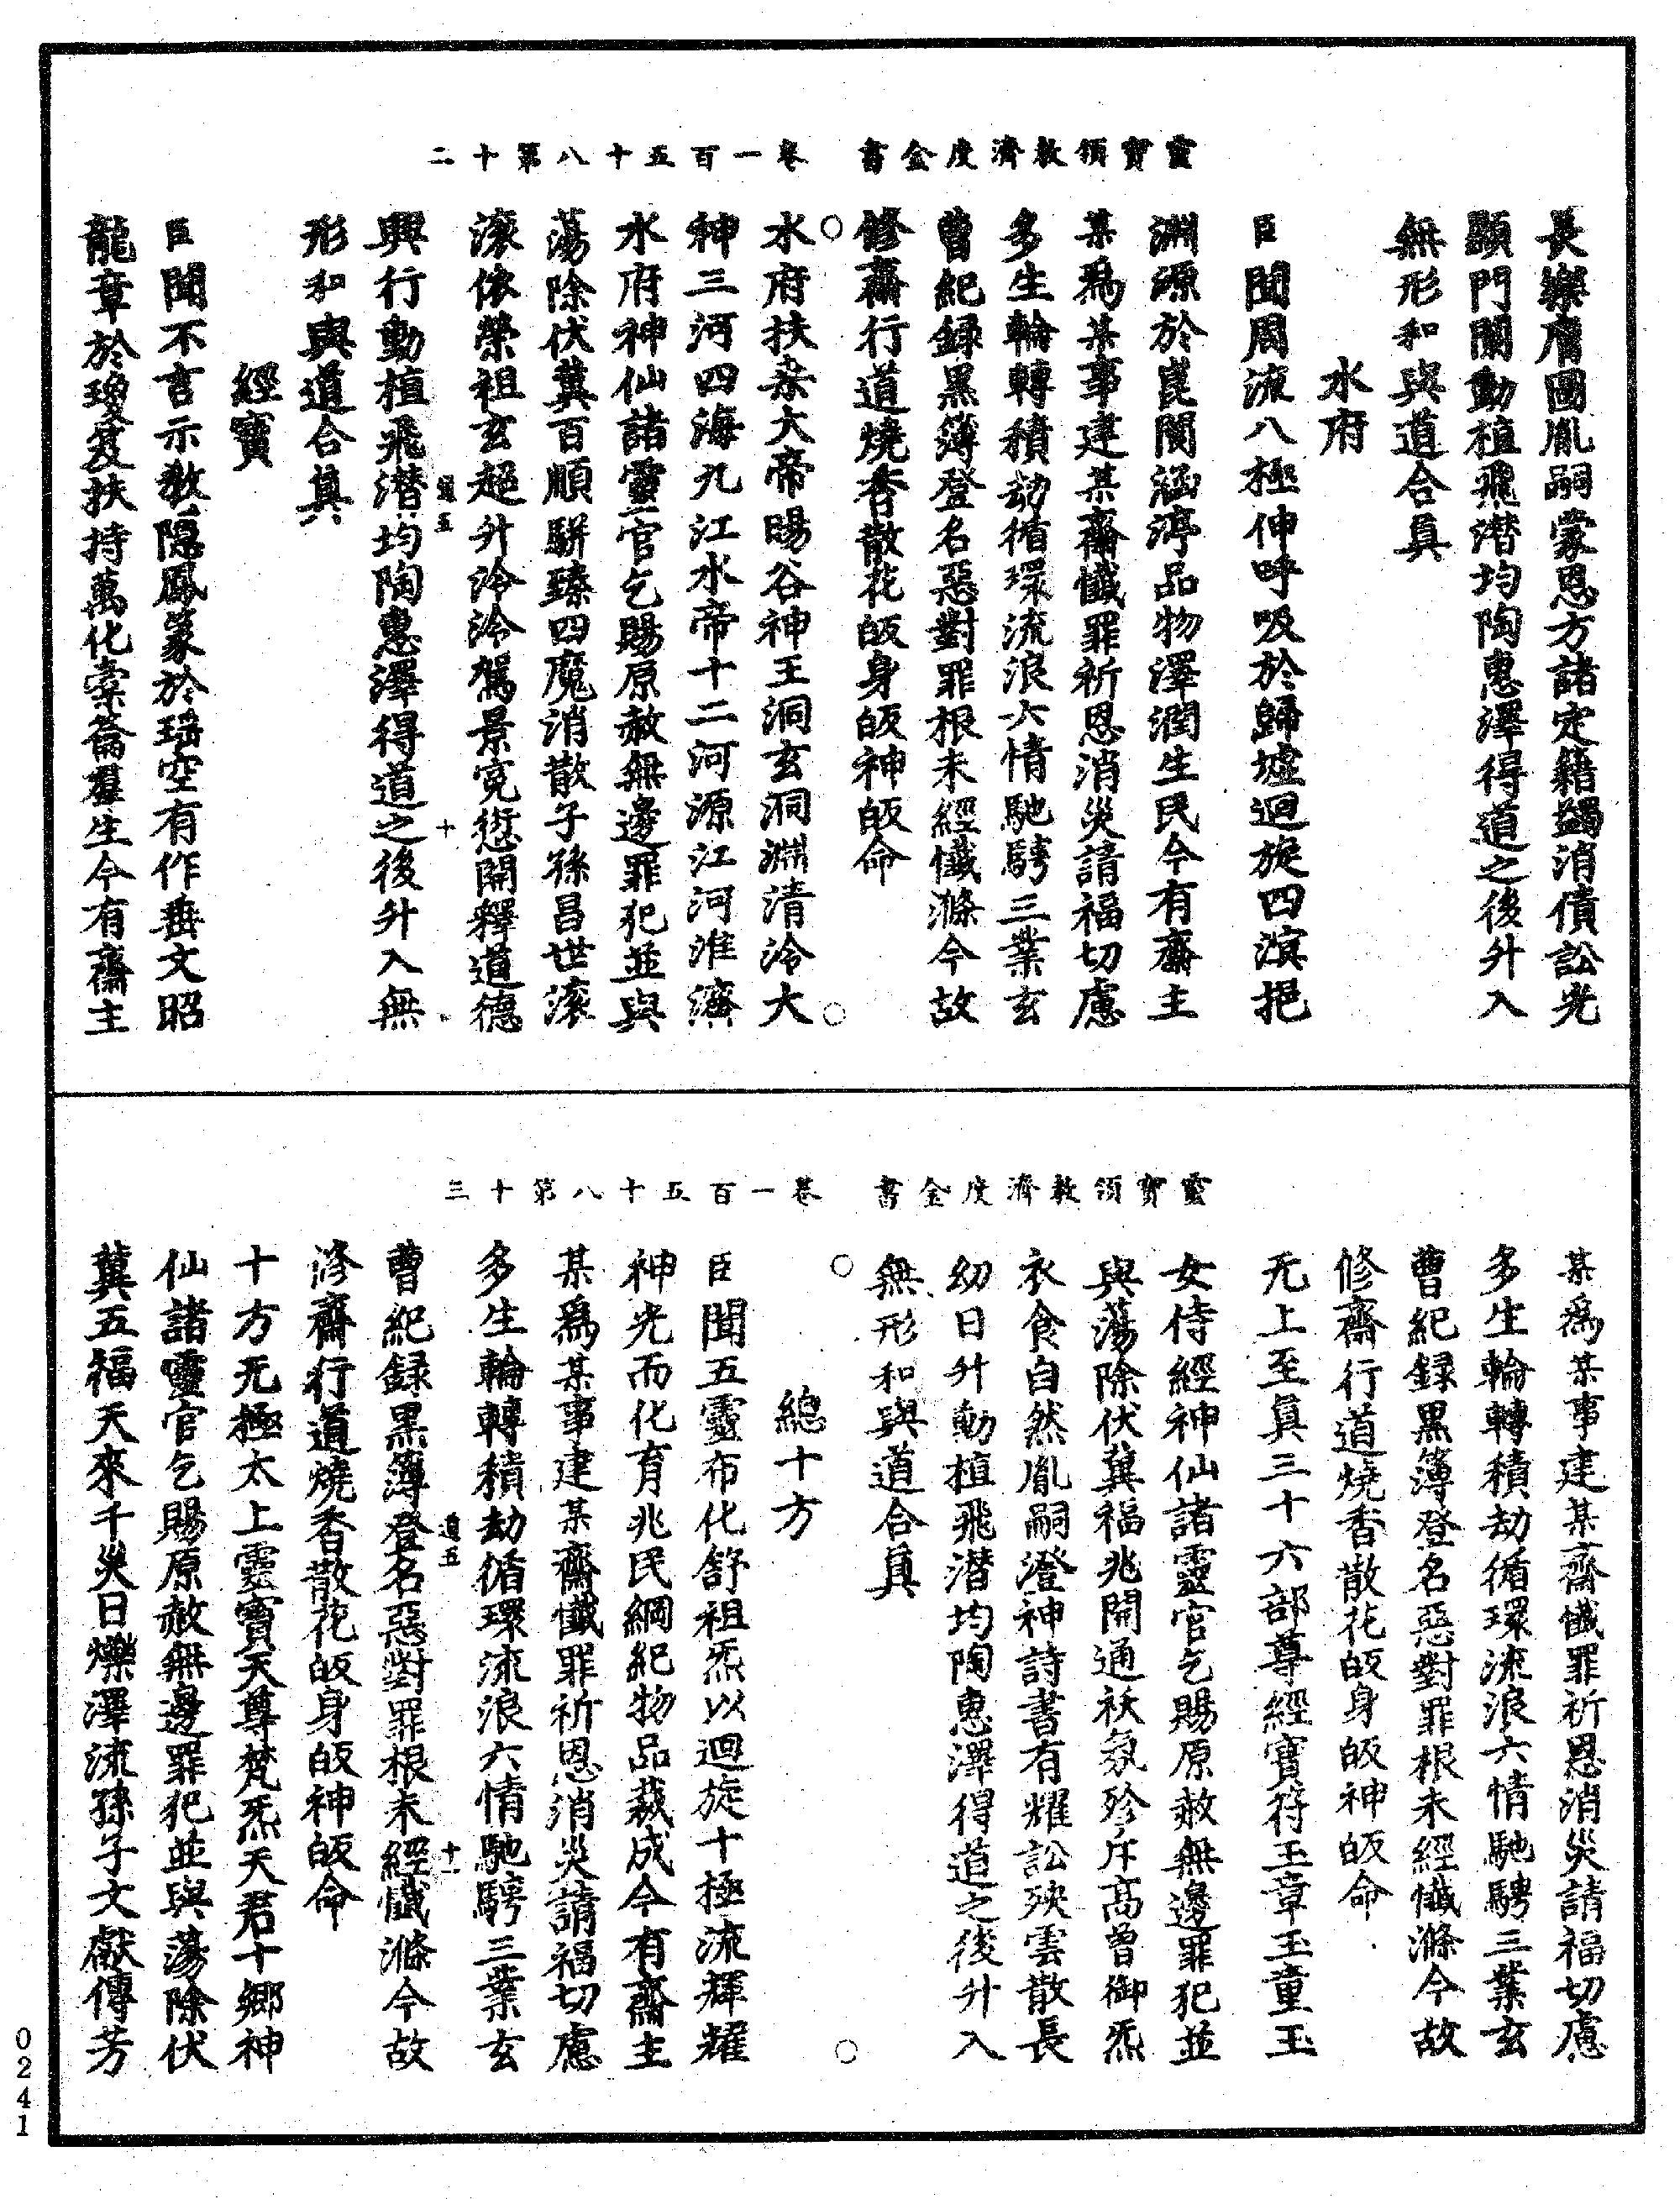 靈寶領教濟度金書　卷一百五十八第十二
長樂膺圖胤嗣蒙恩方諸定籍蠲消債訟光
顯門闌動植飛潛均陶惠澤得道之後升入
無形和與道合真
水府
臣聞周流八極伸呼吸於歸墟迴旋四濵挹
淵源於崑閬涵渟品物澤潤生民今有齋主
某為某事建某齋懺罪祈恩消災請福切慮
多生輪轉積劫循環流浪六情馳騁三業玄
曹紀録黑簿登名惡對罪根未經懺滌今故
修齋行道燒香散花皈身皈神皈命
水府扶桑大帝暘谷神王洞玄洞淵清泠大
神三河四海九江水帝十二河源江河淮濟
水府神仙諸靈官乞賜原赦無邊罪犯並與
蕩除伏冀百順駢臻四魔消散子孫昌世滚
滚依榮祖玄超升泠泠駕景寃愆開釋道德
興行動植飛潛均陶惠澤得道之後升入無
形和與道合真
經寶
臣聞不言示教隱鳳篆於瑶空有作垂文昭
龍章於瓊笈扶持萬化橐籥羣生今有齋主
五
十
靈寶領教濟度金書　卷一百五十八第十三
某為某事建某齋懺罪祈恩消災請福切慮
多生輪轉積劫循環流浪六情馳騁三業玄
曹紀録黑簿登名惡對罪根未經懺滌今故
修齋行道燒香散花皈身皈神皈命
无上至真三十六部尊經寶符玉章玉童玉
女侍經神仙諸靈官乞賜原赦無邊罪犯並
與蕩除伏冀福兆開通祅氛殄斥高曾御炁
衣食自然胤嗣澄神詩書有耀訟殃雲散長
幼日升動植飛潛均陶惠澤得道之後升入
無形和與道合真
總十方
臣聞五靈布化舒祖炁以迴旋十極流輝耀
神光而化育兆民綱紀物品裁成今有齋主
某為某事建某齋懺罪祈恩消災請福切慮
多生輪轉積劫循環流浪六情馳騁三業玄
曹紀録黑簿登名惡對罪根未經懺滌今故
修齋行道燒香散花皈身皈神皈命
十方无極太上靈寶天尊梵炁天君十鄉神
仙諸靈官乞賜原赦無邊罪犯並與蕩除伏
冀五福天來千災日爍澤流孫子文獻傳芳
道五
十一
0241